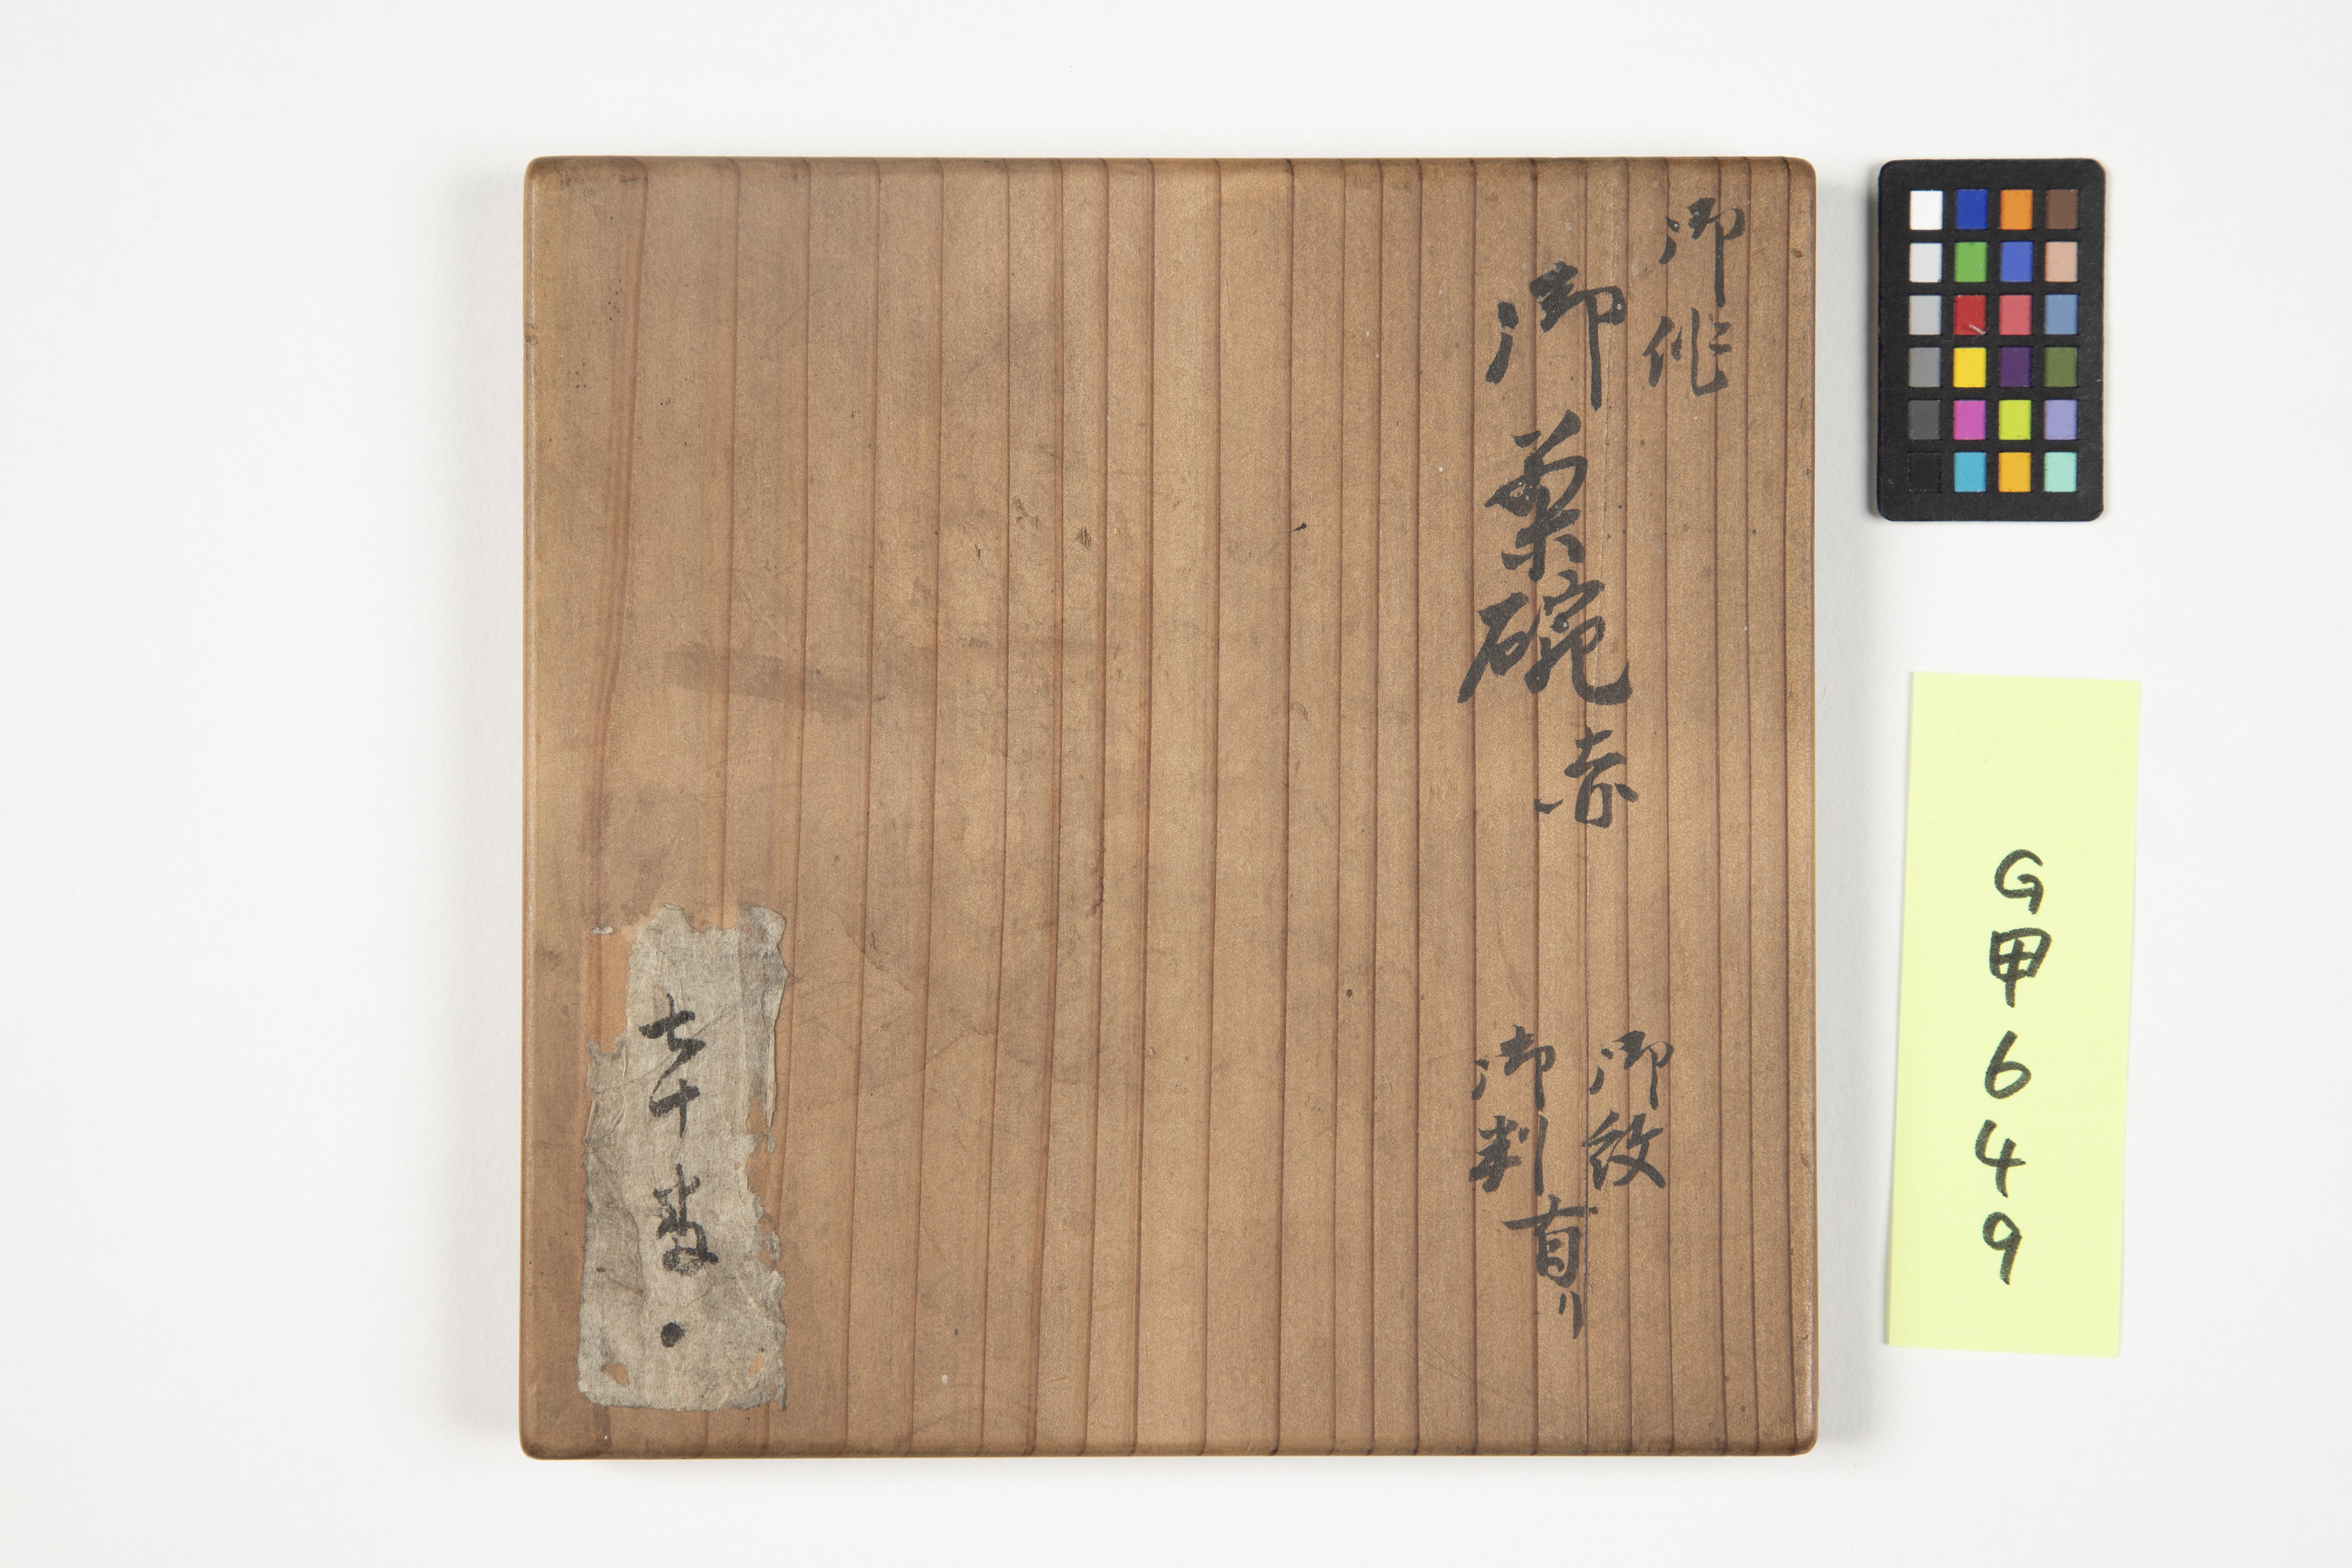 御作
御茶碗 赤
御紋
御判
有リ
G甲649